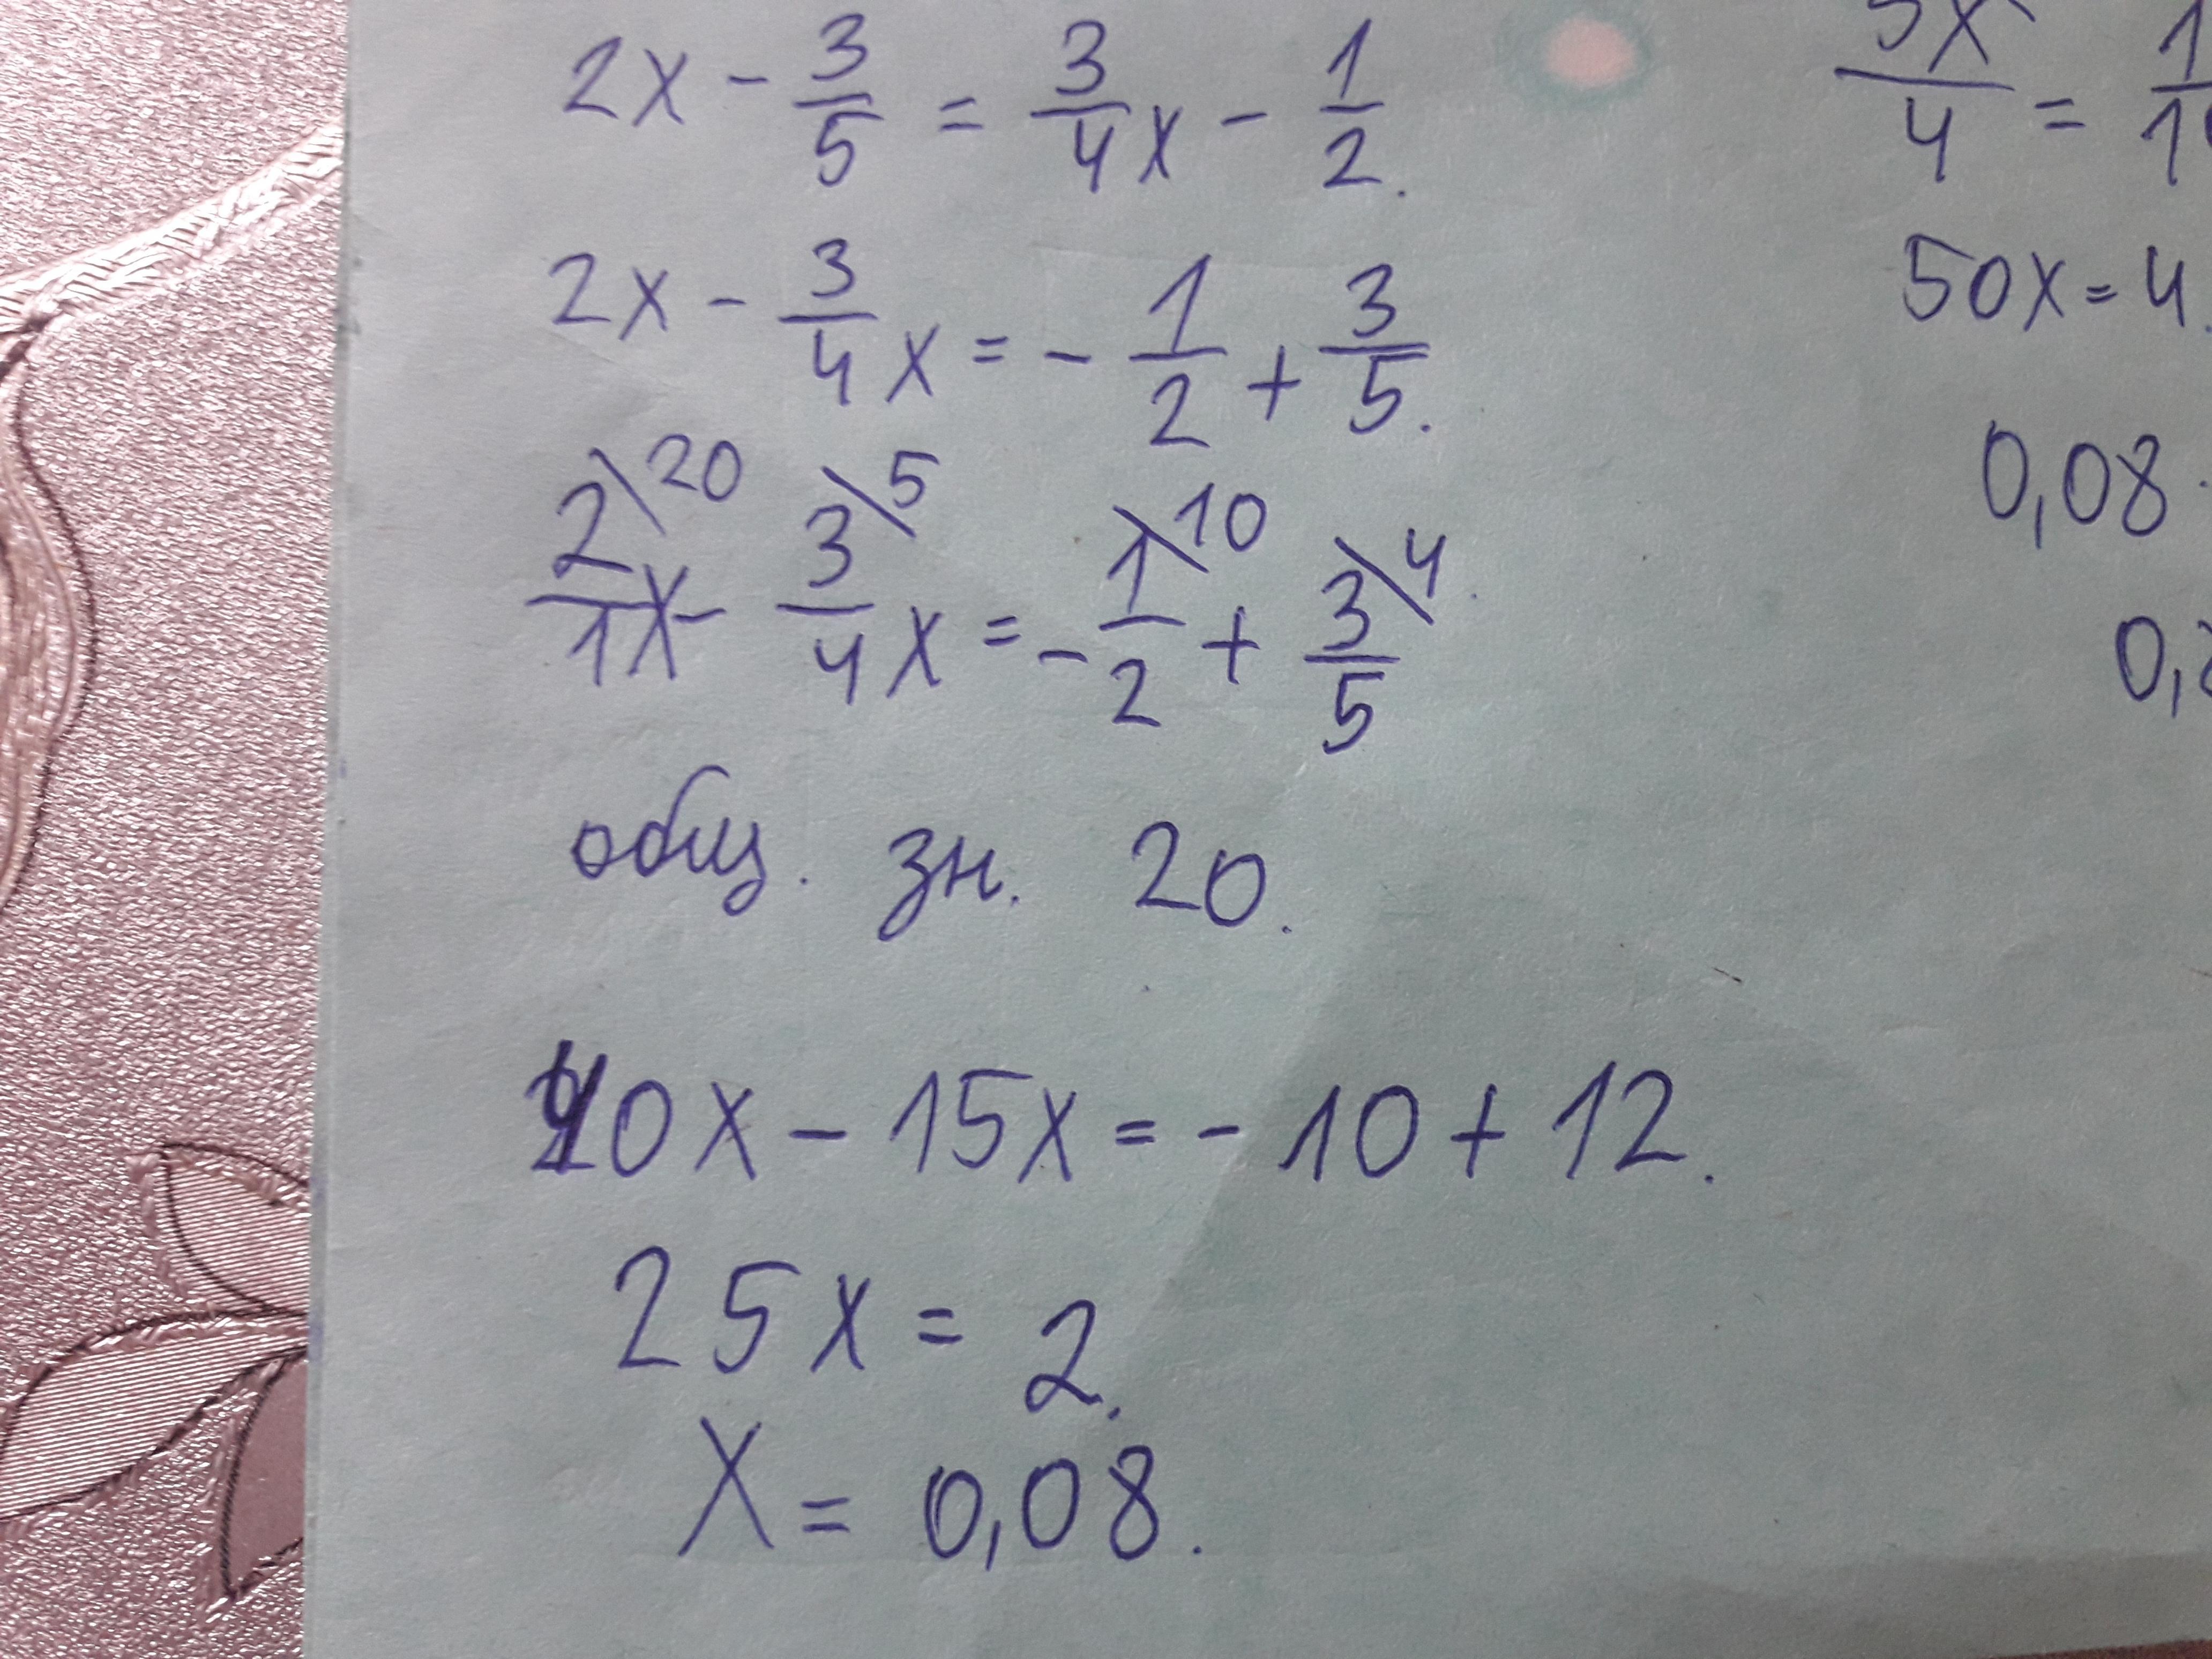 2x - 3/5 = 3/4 x - 1/2.
2x - 3/4 x = - 1/2 + 3/5.
2\20/1 x - 3\5/4 x = - 1\10/2 + 3\4/5
общ. зн. 20.
40x - 15x = - 10 + 12.
25x = 2.
x = 0,08.
5x/4 =
50x = 4.
0,08